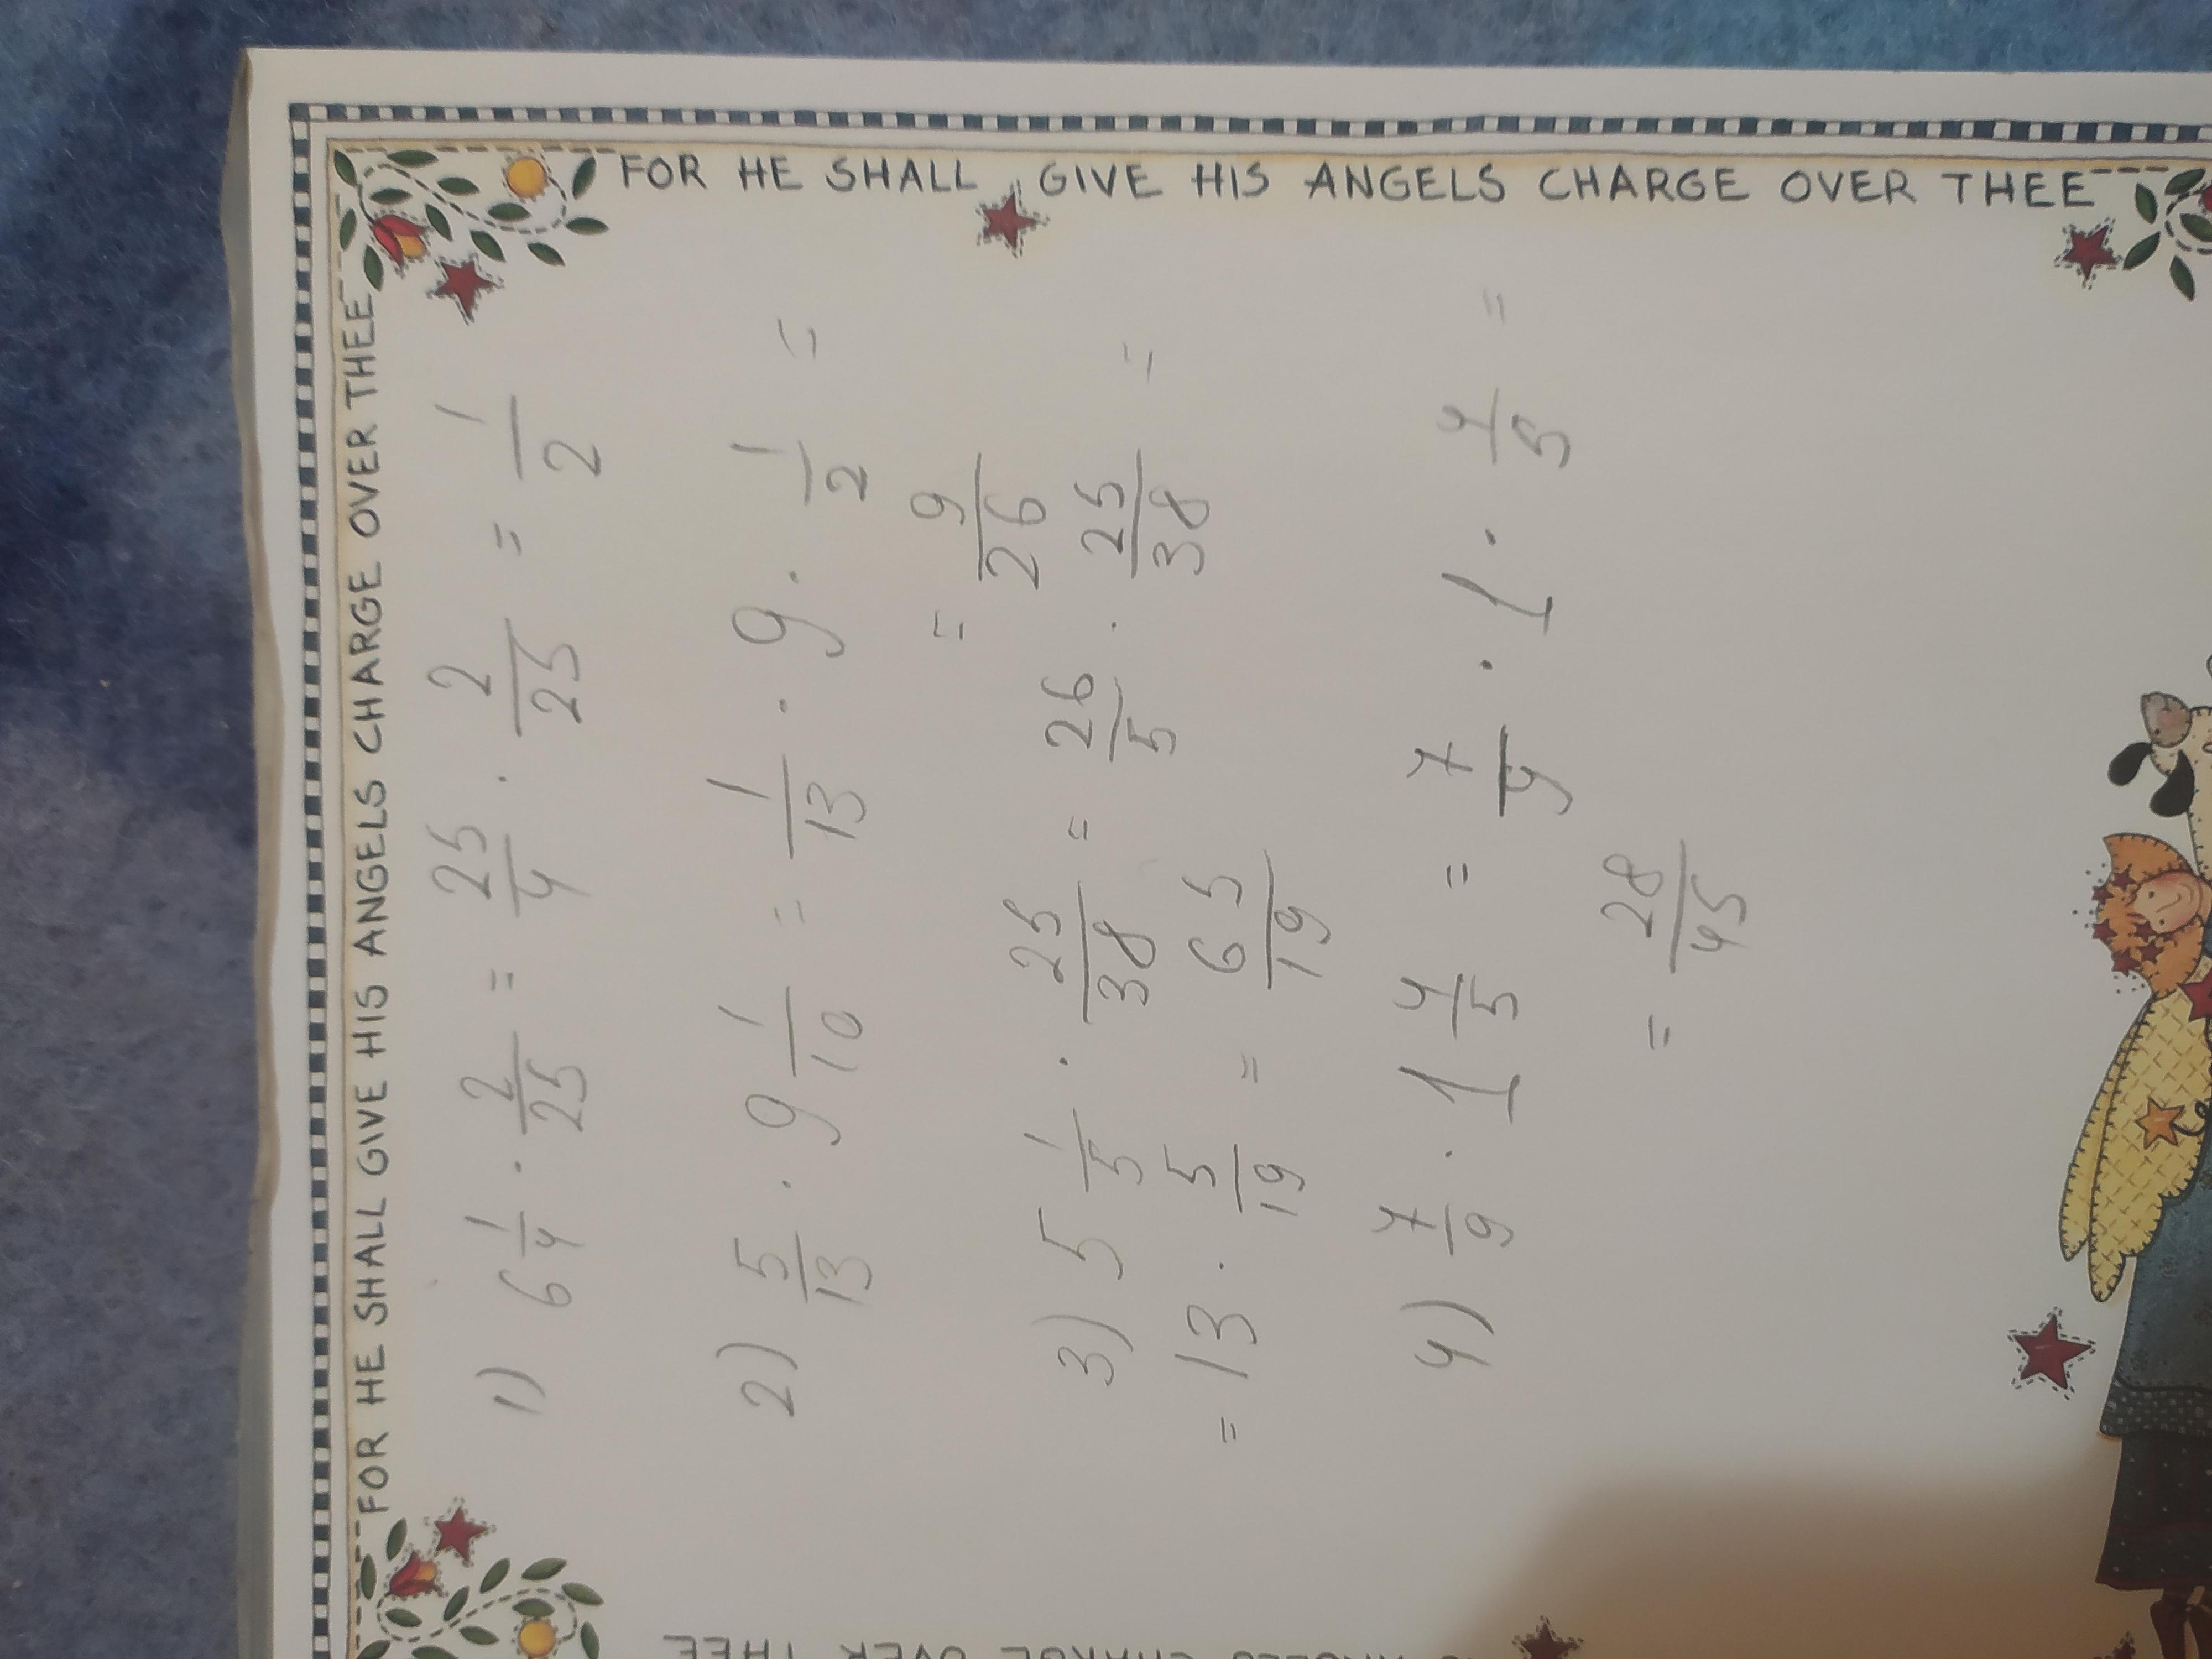 FOR HE SHALL GIVE HIS ANGELS CHARGE OVER THEE
FOR HE SHALL GIVE HIS ANGELS CHARGE OVER THEE
1) 6 1/4 · 2/25 = 25/4 · 2/25 = 1/2
2) 5/13 · 9 1/10 = 1/13 · 9 · 1/2 =
= 9/26
3) 5 1/5 · 25/38 = 26/5 · 25/38 =
= 13 · 5/19 = 65/19
4) 7/9 · 1 4/5 = 7/9 · 1 · 4/5 =
= 28/45
OVER THEE